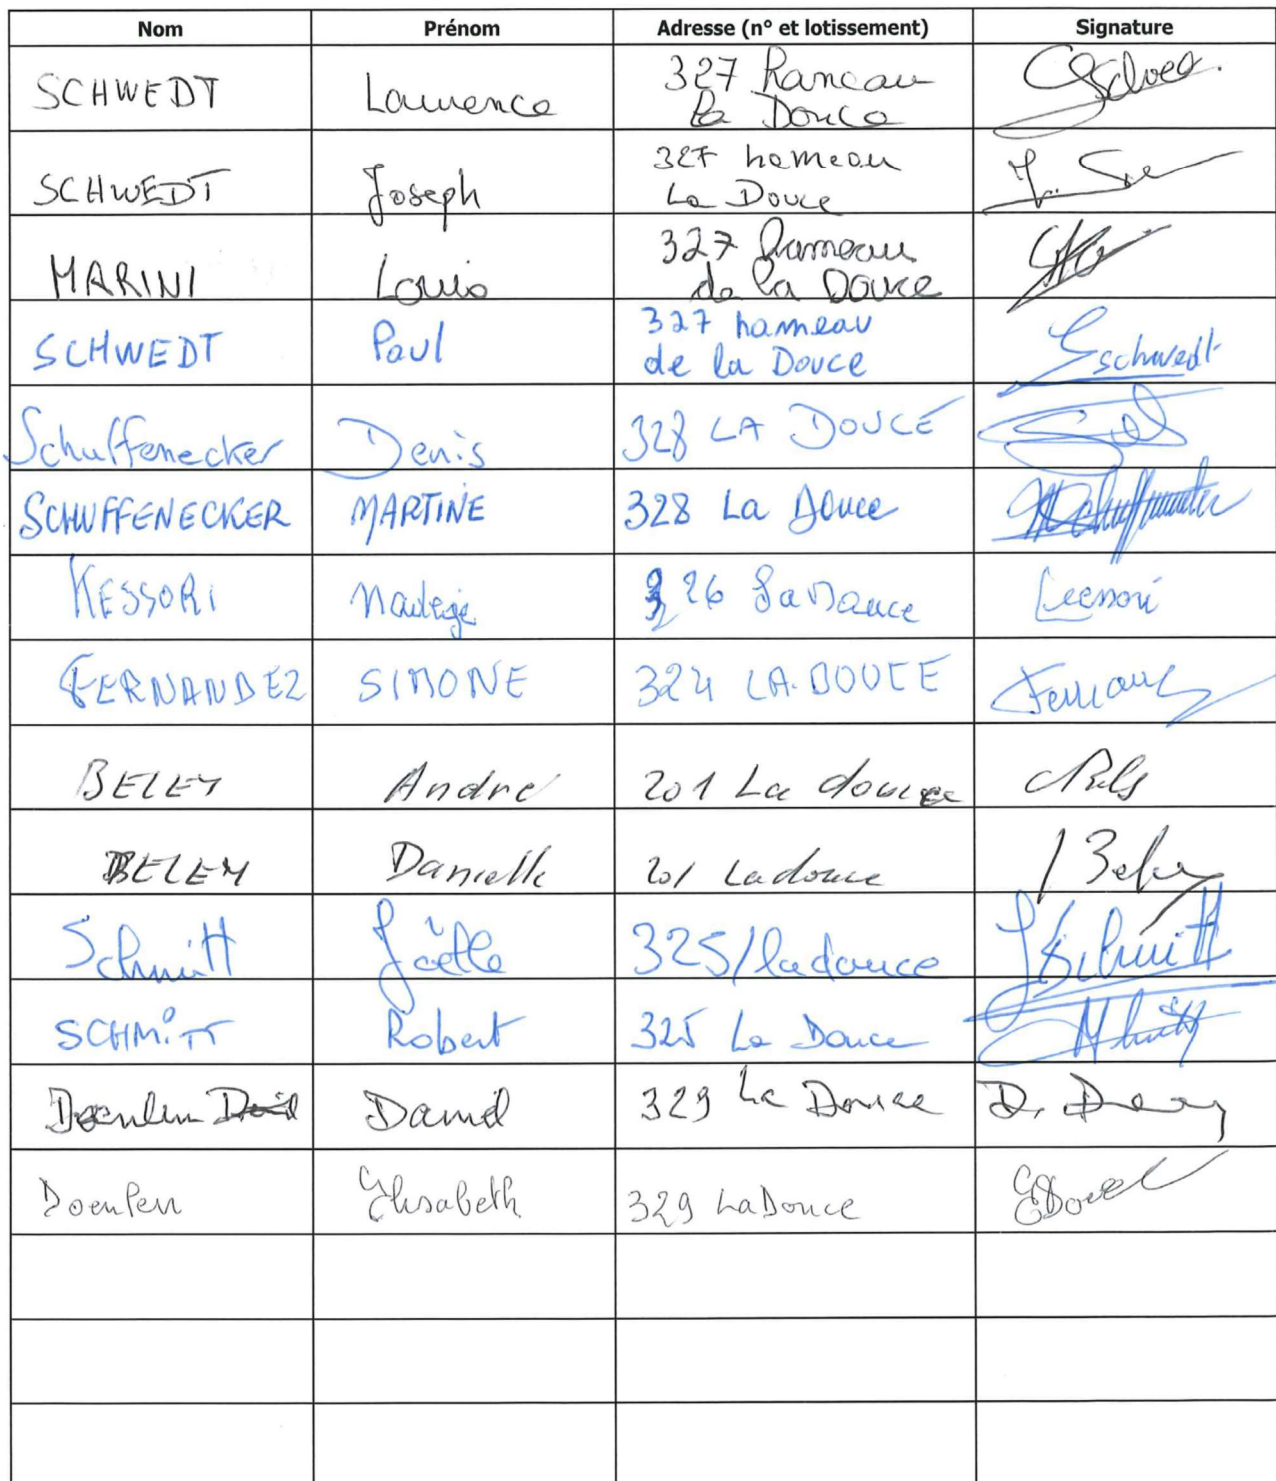 Nom Prénom Adresse (n° et lotissement) Signature
SCHWEDT Laurence 327 hameau
la Douce
SCHWEDT Joseph 327 hameau
La Douce
MARINI Louis 327 hameau
de la Douce
SCHWEDT Paul 327 hameau
de la Douce Schwedt
Schuffenecker Denis 328 LA DOUCE
SCHUFFENECKER MARTINE 328 La Douce
KESSORI Nadege 326 La Douce Kessori
FERNANDEZ SIMONE 324 LA.DOUCE
BELEY André 201 La douce
BELEY Danielle 201 La douce
Schmitt Joëlle 325/la douce JSchmitt
SCHMITT Robert 325 La Douce
Doenlen David 329 La Douce
Doenlen Elisabeth 329 La Douce